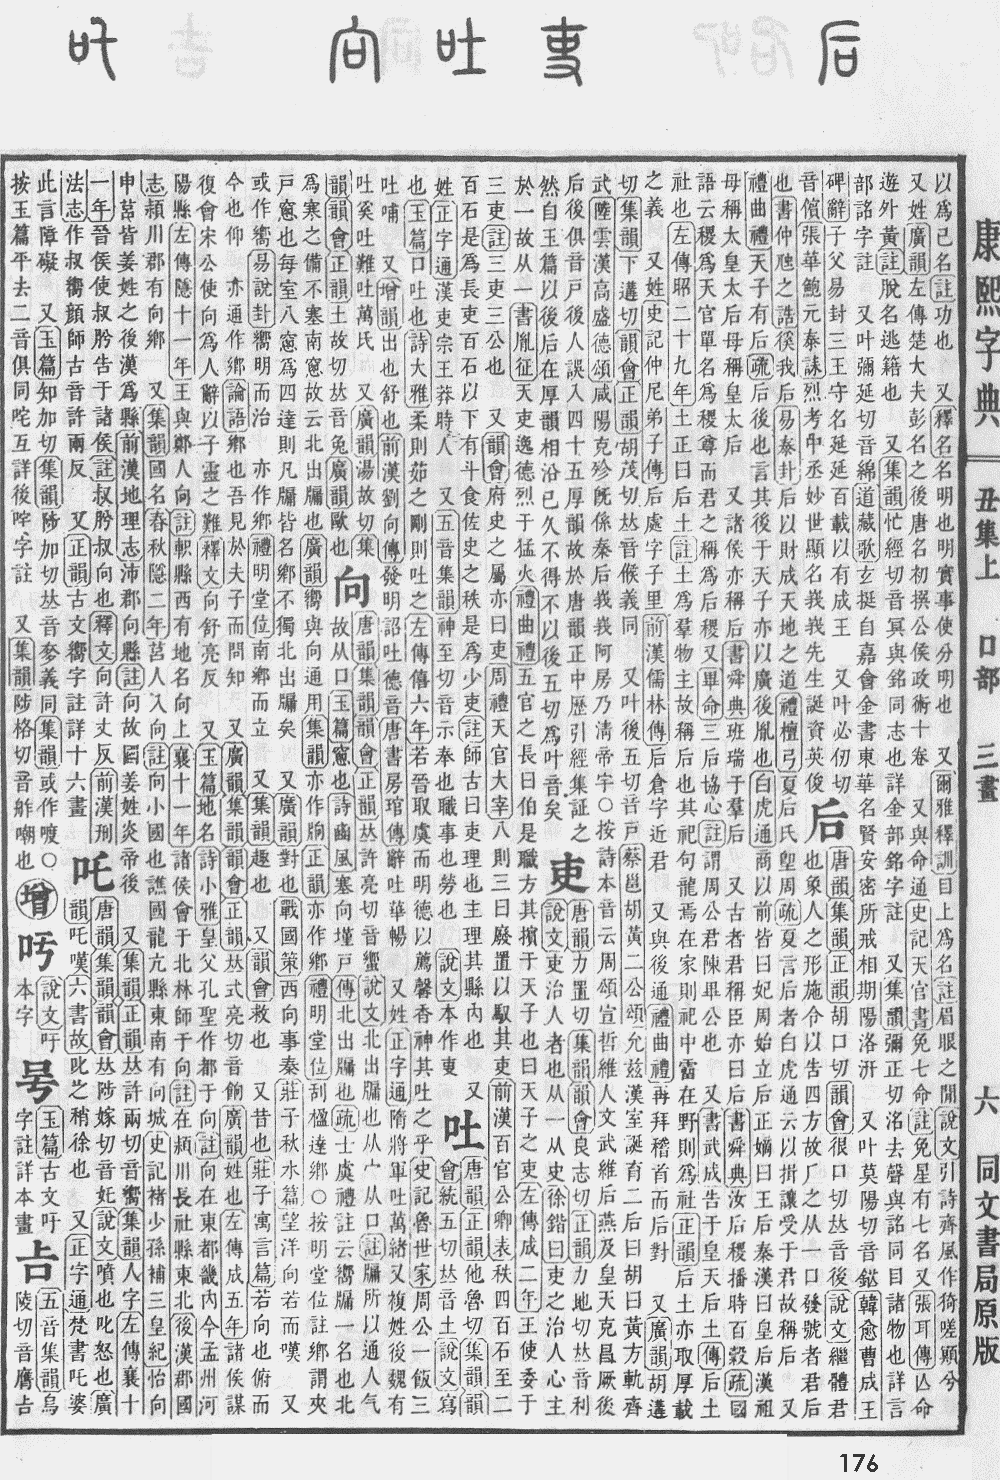 后 吏 吐 向 吒
康熙字典 丑集上 口部 三畫 六 同文書局原版
以爲己名註功也 又釋名名明也明實事使分明也 又爾雅釋訓目上爲名註眉眼之閒說文引詩齊風作猗嗟顯兮
又姓廣韻左傳楚大夫彭名之後唐名初撰公侯政術十卷 又與命通史記天官書免七命註免星有七名又張耳傳亾命
遊外黃註脫名逃籍也 又集韻忙經切音冥與銘同志也詳金部銘字註 又集韻彌正切洺去聲與詺同目諸物也詳言
部詺字註 又叶彌延切音綿道藏歌玄挺自嘉會金書東華名賢安密所戒相期陽洛汧 又叶莫陽切音鋩韓愈曹成王
碑辭子父易封三王守名延延百載以有成王 又叶必仞切
音儐張華鮑元泰誄烈考中丞妙世顯名我我先生誕資英俊
后
唐韻集韻正韻胡口切韻會很口切𠀤音後說文繼體君
也象人之形施令以告四方故厂之从一口發號者君后
也書仲虺之誥徯我后易泰卦后以財成天地之道禮檀弓夏后氏堲周疏夏言后者白虎通云以揖讓受于君故稱后 又
禮曲禮天子有后疏后後也言其後于天子亦以廣後胤也白虎通商以前皆曰妃周始立后正嫡曰王后秦漢曰皇后漢祖
母稱太皇太后母稱皇太后 又諸侯亦稱后書舜典班瑞于羣后 又古者君稱臣亦曰后書舜典汝后稷播時百穀疏國
語云稷爲天官單名爲稷尊而君之稱爲后稷又畢命三后協心註謂周公君陳畢公也 又書武成告于皇天后土傳后土
社也左傳昭二十九年土正曰后土註土爲羣物主故稱后也其祀句龍焉在家則祀中霤在野則爲社正韻后土亦取厚載
之義 又姓史記仲尼弟子傳后處字子里前漢儒林傳后倉字近君 又與後通禮曲禮再拜稽首而后對 又廣韻胡遘
切集韻下遘切韻會正韻胡茂切𠀤音候義同 又叶後五切音戸蔡邕胡黃二公頌允兹漢室誕育二后曰胡曰黃方軌齊
武陸雲漢高盛德頌咸陽克殄旣係秦后峩峩阿房乃清帝宇○按詩本音云周頌宣哲維人文武維后燕及皇天克昌厥後
后後俱音戸後人誤入四十五厚韻故於唐韻正中歷引經集証之
然自玉篇以後后在厚韻相沿已久不得不以後五切爲叶音矣
吏
唐韻力置切集韻韻會良志切正韻力地切𠀤音利
說文吏治人者也从一从史徐鍇曰吏之治人心主
於一故从一書胤征天吏逸德烈于猛火禮曲禮五官之長曰伯是職方其擯于天子也曰天子之吏左傳成二年王使委于
三吏註三吏三公也 又韻會府史之屬亦曰吏周禮天官大宰八則三曰廢置以馭其吏前漢百官公卿表秩四百石至二
百石是爲長吏百石以下有斗食佐史之秩是爲少吏註師古曰吏理也主理其縣內也 又
姓正字通漢吏宗王莽時人 又五音集韻神至切音示奉也職事也勞也 說文本作㕝
吐
唐韻正韻他魯切集韻韻
會統五切𠀤音土說文寫
也玉篇口吐也詩大雅柔則茹之剛則吐之左傳僖六年若晉取虞而明德以薦馨香神其吐之乎史記魯世家周公一飯三
吐哺 又增韻出也舒也前漢劉向傳發明詔吐德音唐書房琯傳辭吐華暢 又姓正字通隋將軍吐萬緒又複姓後魏有
吐奚吐難吐萬氏 又廣韻湯故切集
韻韻會正韻土故切𠀤音兔廣韻歐也
向
唐韻集韻韻會正韻𠀤許亮切音蠁說文北出牖也从宀从口註牖所以通人气
故从口玉篇窻也詩豳風塞向墐戸傳北出牖也疏士虞禮註云嚮牖一名也北
爲寒之備不塞南窻故云北出牖也廣韻嚮與向通用集韻亦作䦳正韻亦作鄉禮明堂位刮楹達鄉○按明堂位註鄉謂夾
戸窻也每室八窻爲四達則凡牖皆名鄉不獨北出牖矣 又廣韻對也戰國策西向事秦莊子秋水篇望洋向若而嘆 又
或作嚮易說卦嚮明而治 亦作鄉禮明堂位南鄉而立 又集韻趣也 又韻會救也 又昔也莊子寓言篇若向也俯而
今也仰 亦通作鄉論語鄉也吾見於夫子而問知 又廣韻集韻韻會正韻𠀤式亮切音餉廣韻姓也左傳成五年諸侯謀
復會宋公使向爲人辭以子靈之難釋文向舒亮反 又玉篇地名詩小雅皇父孔聖作都于向註向在東都畿內今孟州河
陽縣左傳隱十一年王與鄭人向註軹縣西有地名向上襄十一年諸侯會于北林師于向註在潁川長社縣東北後漢郡國
志潁川郡有向鄉 又集韻國名春秋隱二年莒人入向註向小國也譙國龍亢縣東南有向城史記褚少孫補三皇紀怡向
申莒皆姜姓之後漢爲縣前漢地理志沛郡向縣註向故國姜姓炎帝後 又集韻正韻𠀤許兩切音響集韻人字左傳襄十
一年晉侯使叔肸告于諸侯註叔肸叔向也釋文向許丈反前漢刑
法志作叔嚮顏師古音許兩反 又正韻古文嚮字註詳十六畫
吒
唐韻集韻韻會𠀤陟嫁切音奼說文噴也叱怒也廣
韻吒嘆六書故叱之稍徐也 又正字通梵書吒婆
此言障礙 又玉篇知加切集韻陟加切𠀤音奓義同集韻或作喥○
按玉篇平去二音俱同咤互詳後咤字註 又集韻陟格切音舴嘲也
增
說文吁
本字
玉篇古文吁
字註詳本畫
五音集韻烏
陵切音膺
176